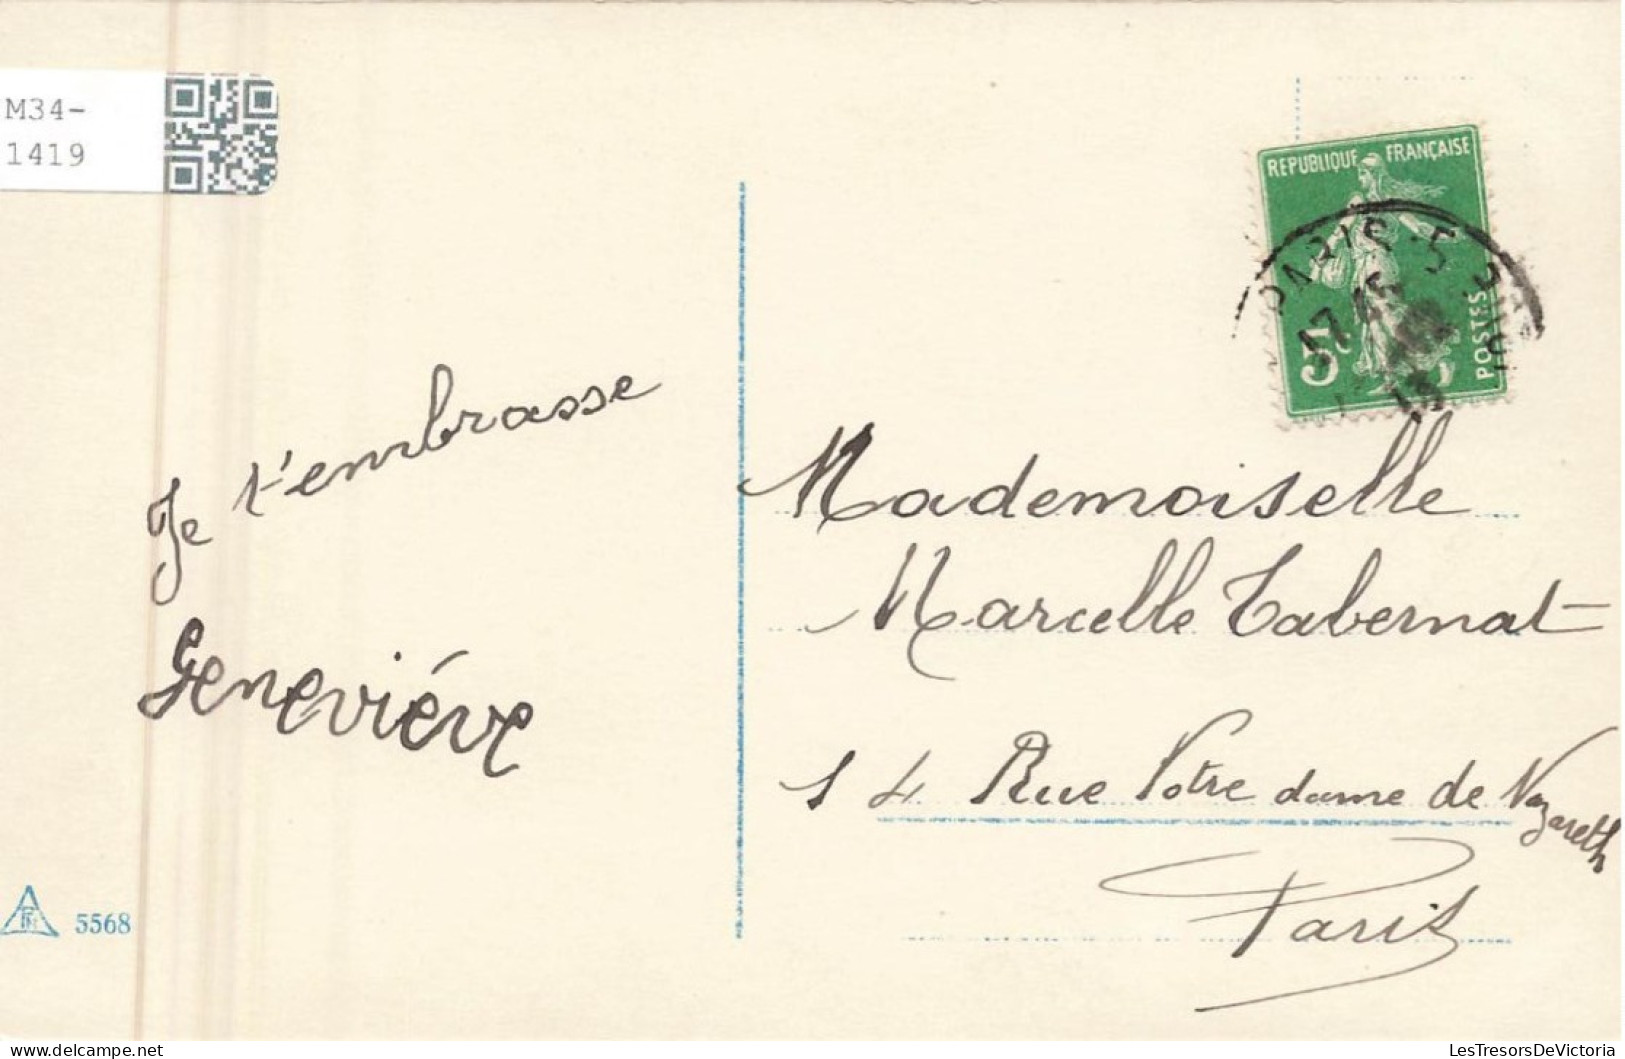 M34-
1419
REPUBLIQUE FRANÇAISE
PARIS
5
17
5c
POSTES
13
Je t'embrasse
Geneviéve
Mademoiselle
Marcelle Tabernat
14 Rue Notre dame de Nazareth
Paris
5568
delcampe.net
LesTresorsDeVictoria